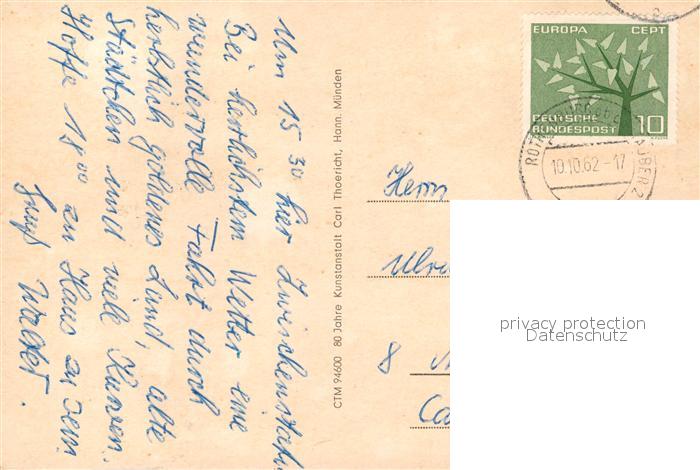 Um 15³⁰ hier Zwischenstat
Bei herrlichstem Wetter eine
wundervolle Fahrt durch
herbstlich goldenes Land, alte
Städtchen und viele Kurven.
Hoffe 18⁰⁰ zu Haus zu sein
Gruß Walter.
CTM 94600 80 Jahre Kunstanstalt Carl Thoericht, Hann. Münden
EUROPA CEPT
DEUTSCHE
BUNDESPOST 10
10.10.62-17
Herrn
Ulri
8
privacy protection
Datenschutz